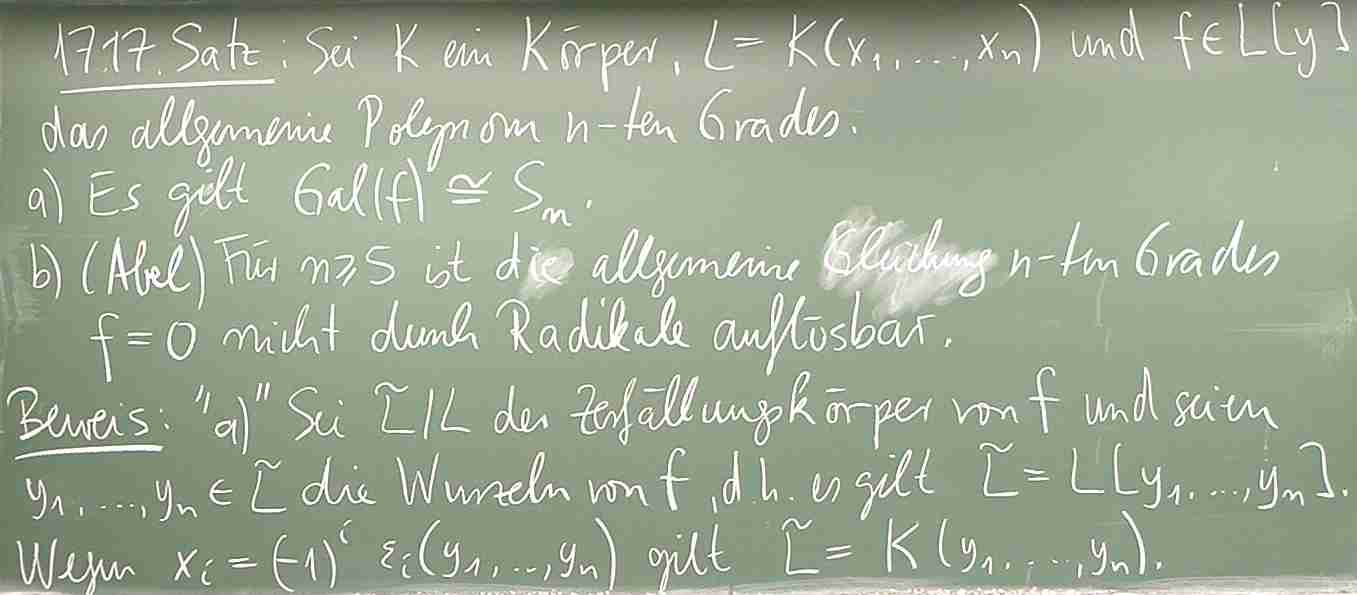 17.17. Satz: Sei K ein Körper, L = K(x₁,...,xₙ) und f ∈ L[y]
das allgemeine Polynom n-ten Grades.
a) Es gilt Gal(f) ≅ Sₙ.
b) (Abel) Für n ≥ 5 ist die allgemeine Gleichung n-ten Grades
f = 0 nicht durch Radikale auflösbar.
Beweis: "a)" Sei L̃/L der Zerfällungskörper von f und seien
y₁,...,yₙ ∈ L̃ die Wurzeln von f, d.h. es gilt L̃ = L[y₁,...,yₙ].
Wegen xᵢ = (-1)ⁱ εᵢ(y₁,...,yₙ) gilt L̃ = K(y₁,...,yₙ).